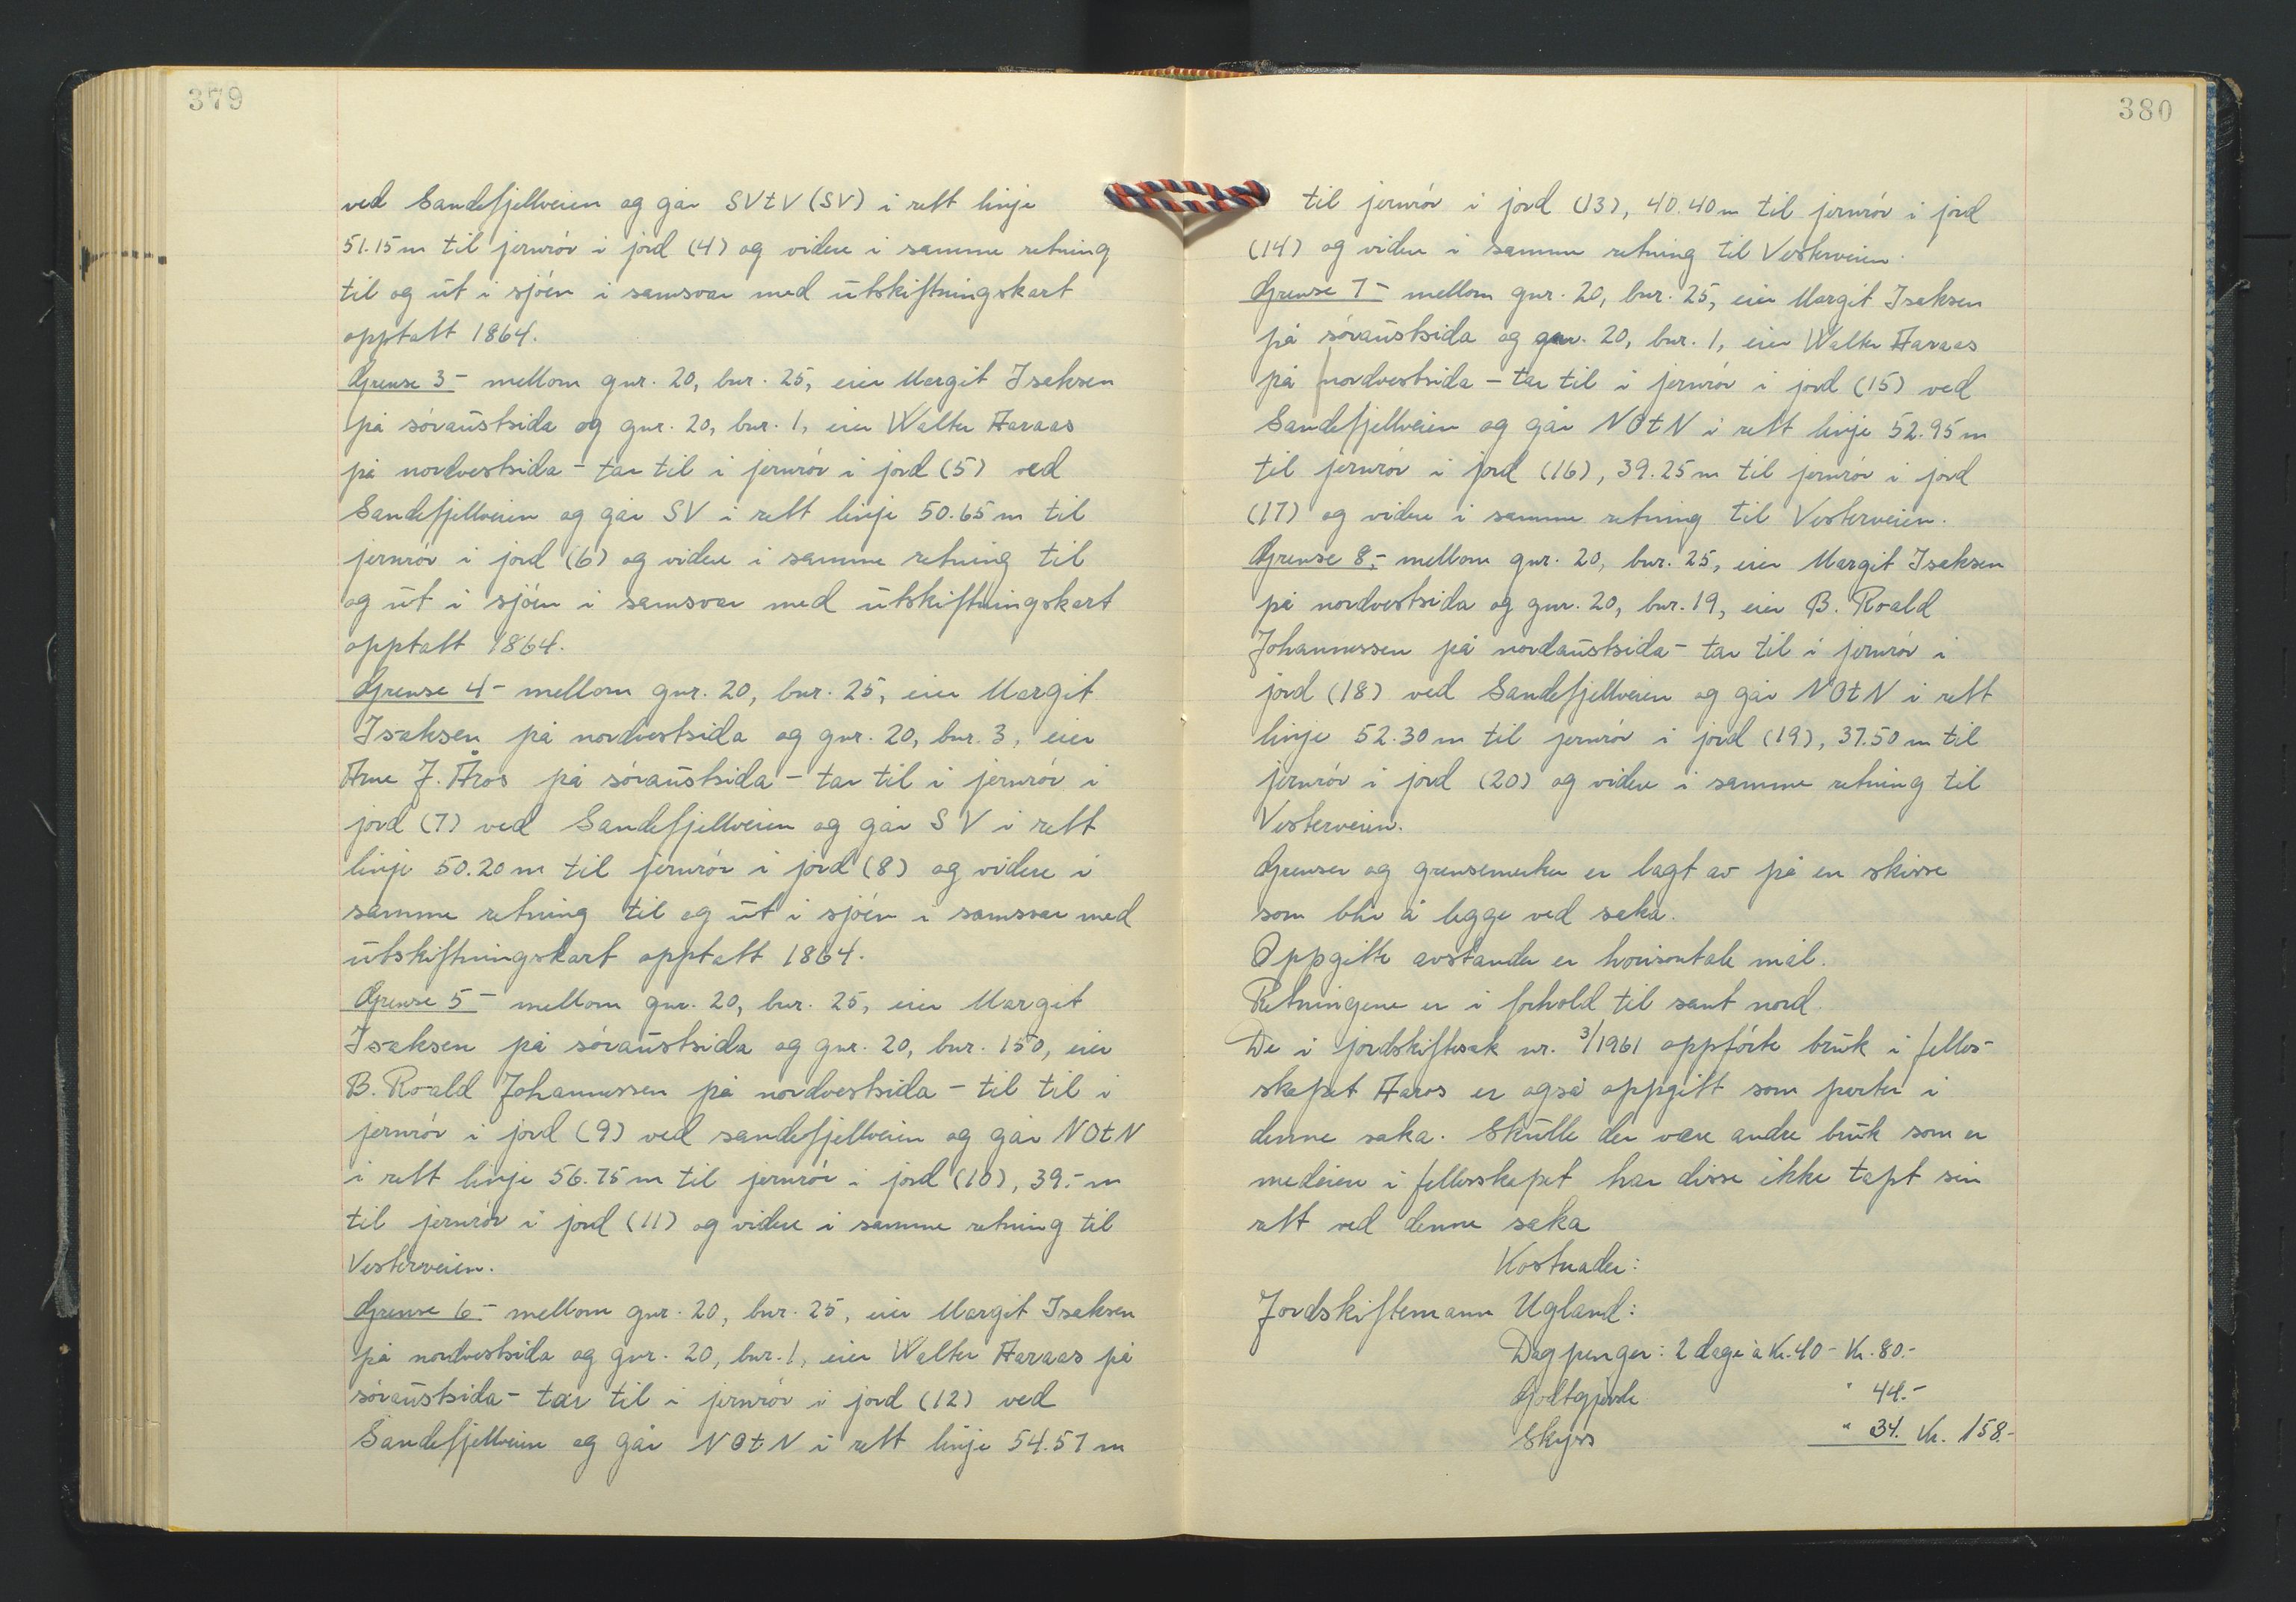 379
ved Sandefjellveien og går SVtV (SV) i rett linje
51.15 m til jernrör i jord (4) og videre i samme retning
til og ut i sjöen i samsvar med utskiftningskart
opptatt 1864.
Grense 3 - mellom gnr. 20, bnr. 25, eier Margit Isaksen
på söraustsida og gnr. 20, bnr. 1, eier Walter Aaraas
på nordvestsida - tar til i jernrör i jord (5) ved
Sandefjellveien og går SV i rett linje 50.65 m til
jernrör i jord (6) og videre i samme retning til
og ut i sjöen i samsvar med utskiftningskart
opptatt 1864.
Grense 4 - mellom gnr. 20, bnr. 25, eier Margit
Isaksen på nordvestsida og gnr. 20, bnr. 3, eier
Arne J. Åros på söraustsida - tar til i jernrör i
jord (7) ved Sandefjellveien og går SV i rett
linje 50.20 m til jernrör i jord (8) og videre i
samme retning til og ut i sjöen i samsvar med
utskiftningskart opptatt 1864.
Grense 5 - mellom gnr. 20, bnr. 25, eier Margit
Isaksen på söraustsida og gnr. 20, bnr. 150, eier
B. Roald Johannessen på nordvestsida - til til i
jernrör i jord (9) ved sandefjellveien og går NOtN
i rett linje 56.75 m til jernrör i jord (10), 39.- m
til jernrör i jord (11) og videre i samme retning til
Vesterveien.
Grense 6 - mellom gnr. 20, bnr. 25, eier Margit Isaksen
på nordvestsida og gnr. 20, bnr. 1, eier Walter Aaraas på
söraustsida - tar til i jernrör i jord (12) ved
Sandefjellveien og går NOtN i rett linje 54.57 m
380
til jernrör i jord (13), 40.40 m til jernrör i jord
(14) og videre i samme retning til Vesterveien.
Grense 7 - mellom gnr. 20, bnr. 25, eier Margit Isaksen
på söraustsida og gnr. 20, bnr. 1, eier Walter Aaraas
på nordvestsida - tar til i jernrör i jord (15) ved
Sandefjellveien og går NOtN i rett linje 52.95 m
til jernrör i jord (16), 39.25 m til jernrör i jord
(17) og videre i samme retning til Vesterveien.
Grense 8,- mellom gnr. 20, bnr. 25, eier Margit Isaksen
på nordvestsida og gnr. 20, bnr. 19, eier B. Roald
Johannessen på nordaustsida - tar til i jernrör i
jord (18) ved Sandefjellveien og går NOtN i rett
linje 52.30 m til jernrör i jord (19), 37.50 m til
jernrör i jord (20) og videre i samme retning til
Vesterveien.
Grenser og grensemerker er lagt av på en skisse
som blir å legge ved saka.
Oppgitte avstander er horisontale mål.
Retningene er i forhold til sant nord.
De i jordskiftesak nr. 3/1961 oppförte bruk i felles-
skapet Aaros er også oppgitt som parter i
denne saka. Skulle der være andre bruk som er
medeiere i fellesskapet har disse ikke tapt sin
rett ved denne saka
Kostnader:
Jordskiftemann Ugland:
Dagpenger: 2 dage à Kr. 40 - Kr. 80.-
Godtgjörde " 44.-
Skyss " 34. Kr. 158.-